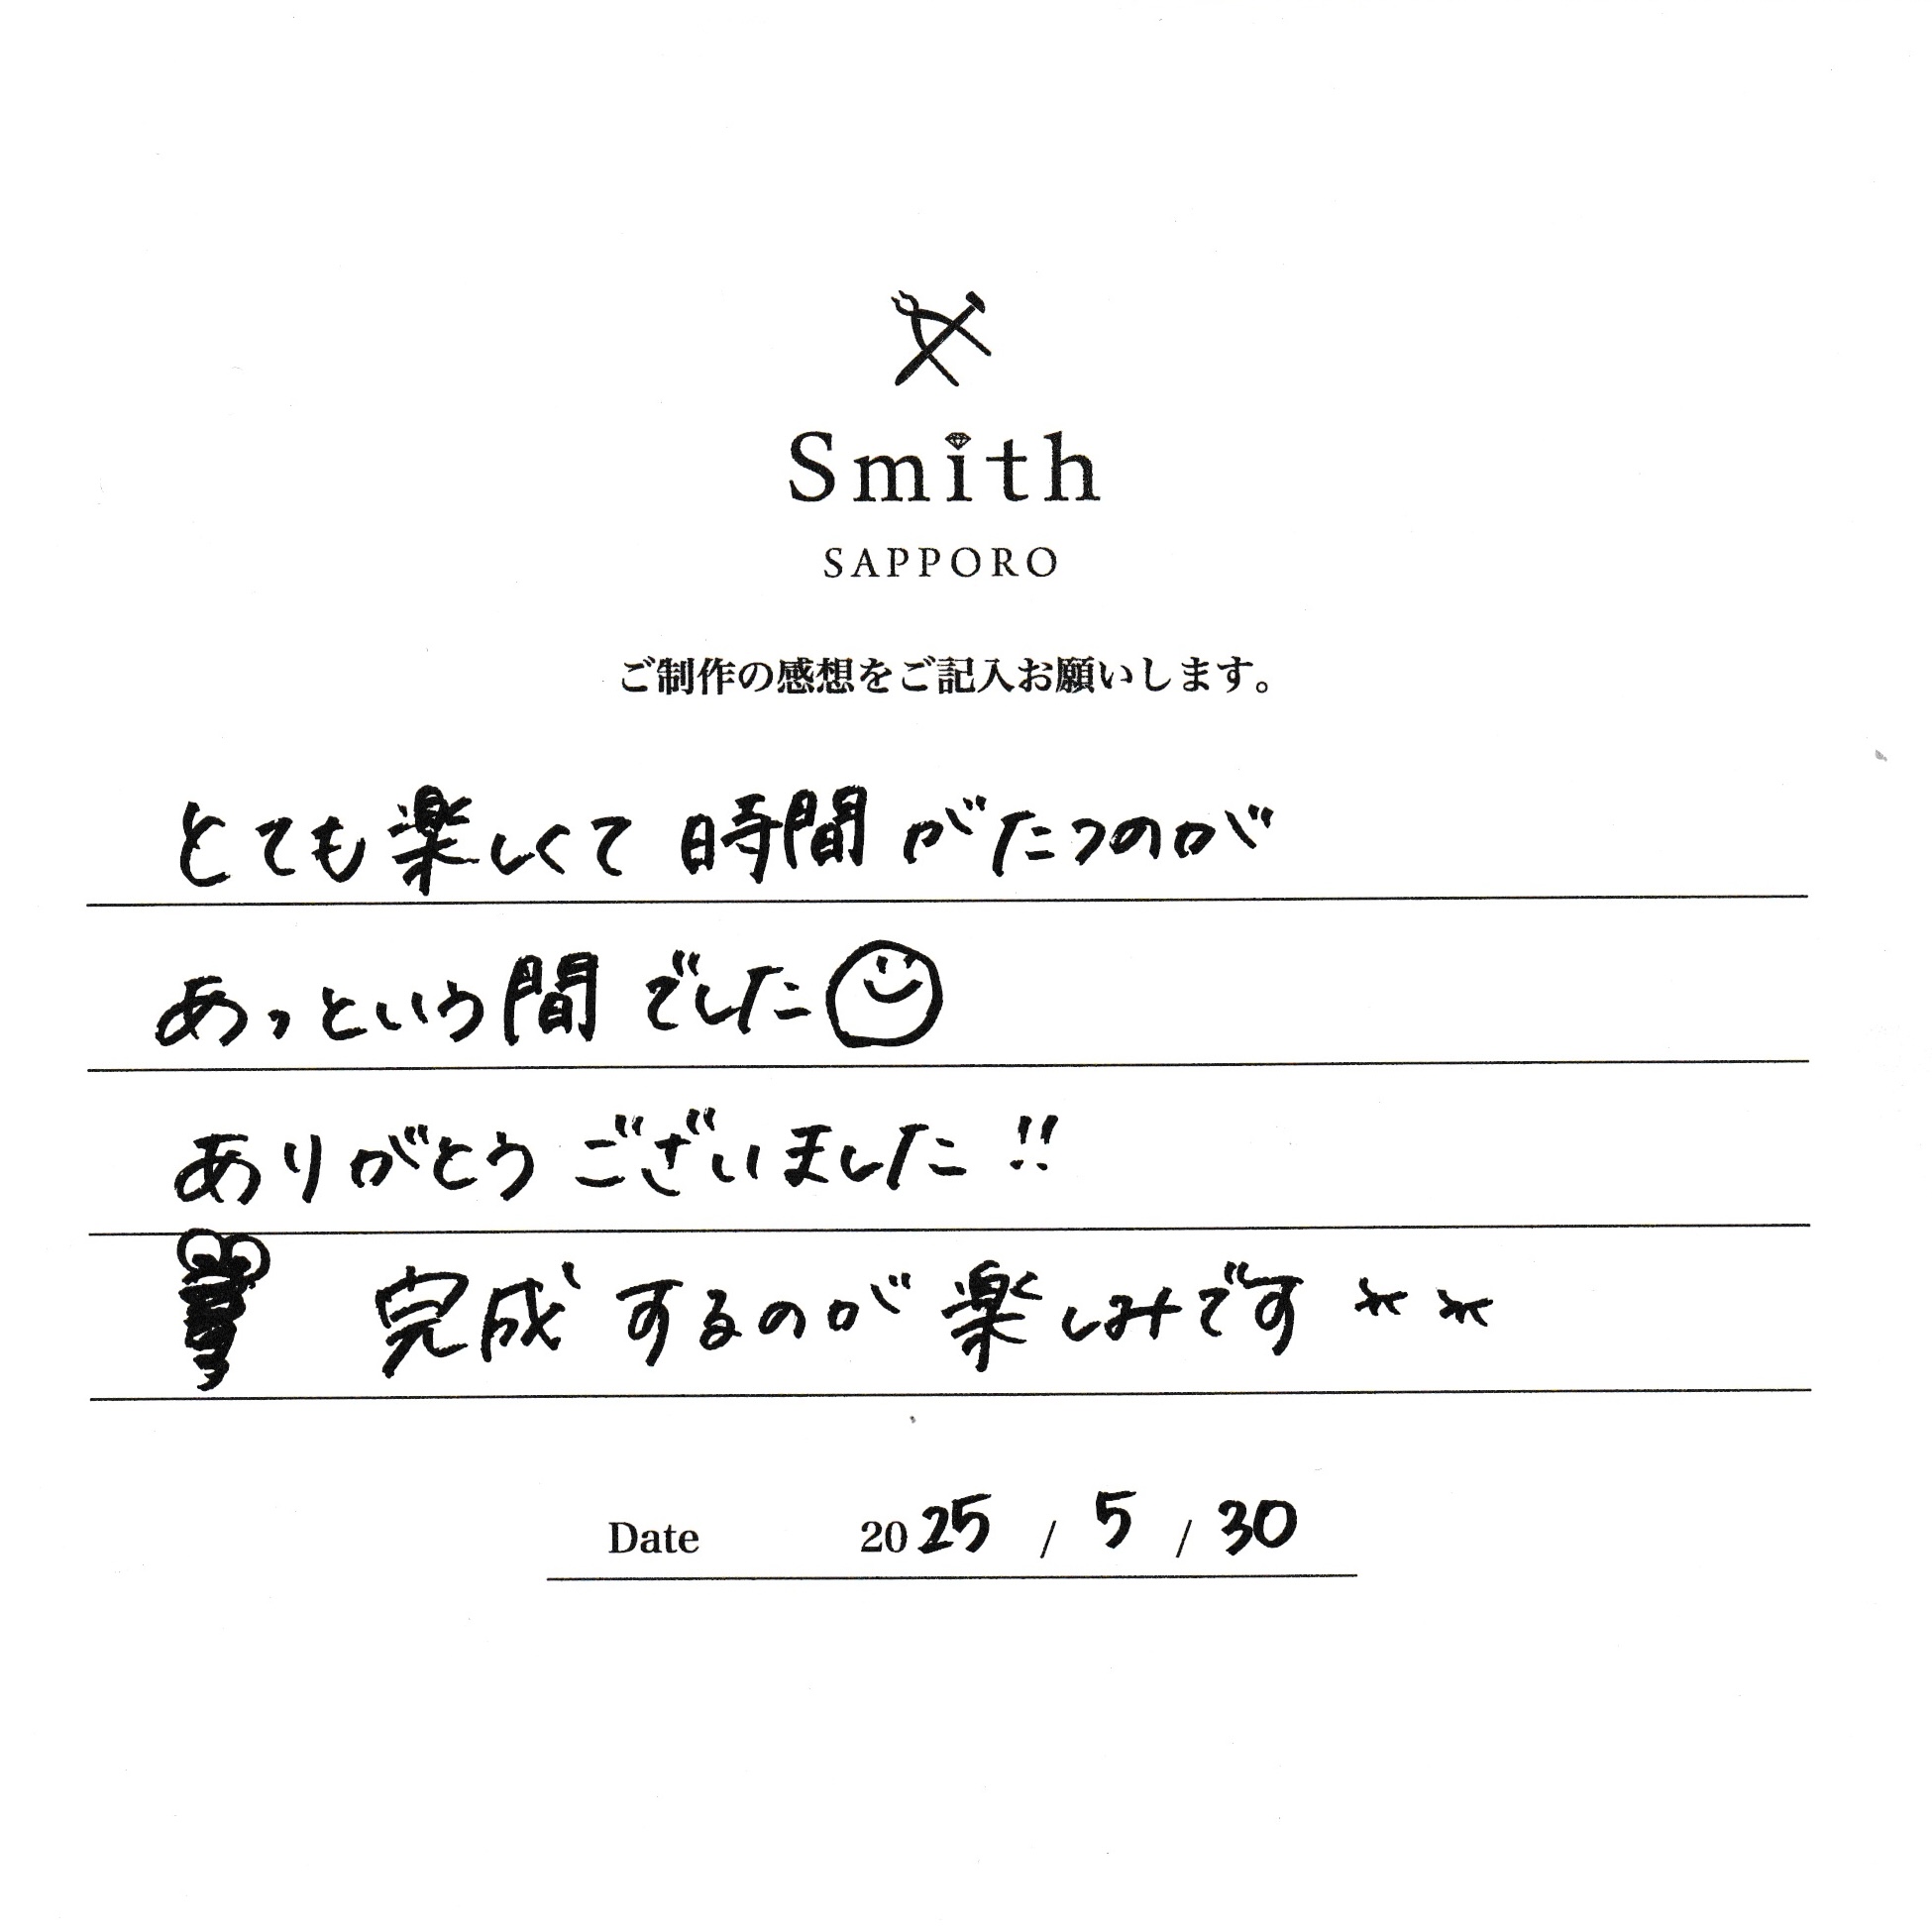 Smith
SAPPORO
ご制作の感想をご記入お願いします。
とても楽しくて時間がたつのが
あっという間でした
ありがとうございました!!
完成するのが楽しみです**
Date 2025 / 5 / 30